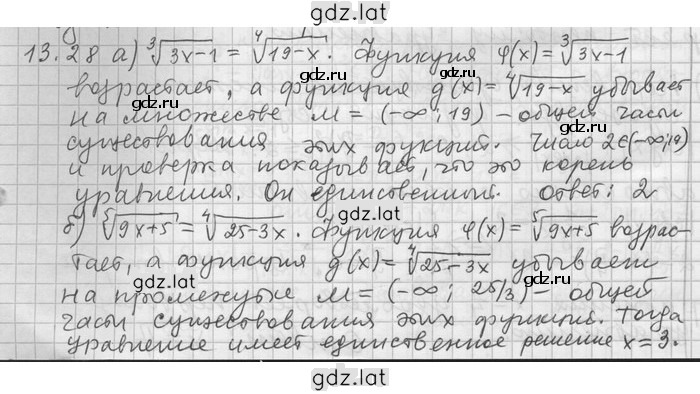 gdz.lat
13.28 а) ∛(3x-1) = ∜(19-x). Функция φ(x) = ∛(3x-1)
возрастает, а функция g(x) = ∜(19-x) убывает
на множестве M = (-∞; 19) - общей части
существования этих функций. Число 2∈(-∞;19)
и проверка показывает, что это корень
уравнения. Он единственный. Ответ: 2
б) ⁵√(9x+5) = ∜(25-3x). Функция φ(x) = ⁵√(9x+5) возрас-
тает, а функция g(x) = ∜(25-3x) убывает
на промежутке M = (-∞; 25/3) - общей
части существования этих функций. Тогда
уравнение имеет единственное решение x=3.
gdz.lat